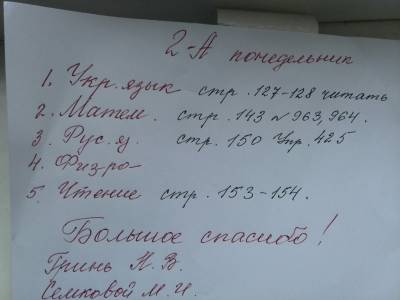 2-А понедельник
1. Укр. язык стр. 127-128 читать
2. Матем. стр. 143 № 963, 964.
3 Рус. я. стр. 150 Упр. 425
4. Физ-ра
5. Чтение стр. 153-154.
Большое спасибо!
Гринь Н. В.
Семковой М. И.